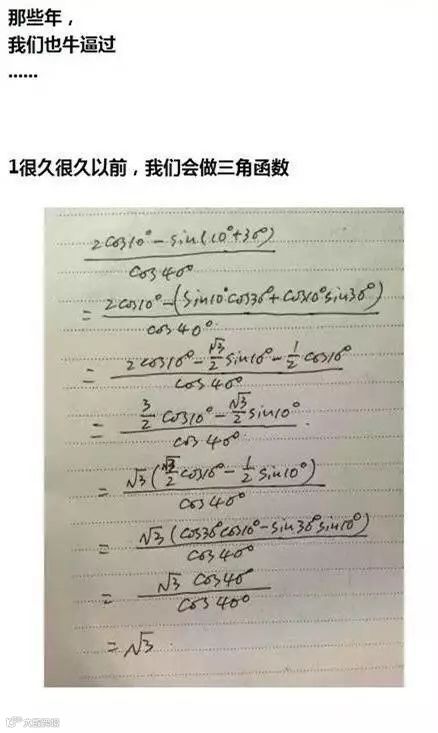 那些年，
我们也牛逼过
……
1很久很久以前，我们会做三角函数
2cos10°-sin(10°+30°)
cos40°
= 2cos10°-(sin10°cos30°+cos10°sin30°)
cos40°
= 2cos10°-√3/2 sin10°-1/2 cos10°
cos40°
= 3/2 cos10°-√3/2 sin10°
cos40°
= √3(√3/2 cos10°-1/2 sin10°)
cos40°
= √3(cos30°cos10°-sin30°sin10°)
cos40°
= √3 cos40°
cos40°
= √3